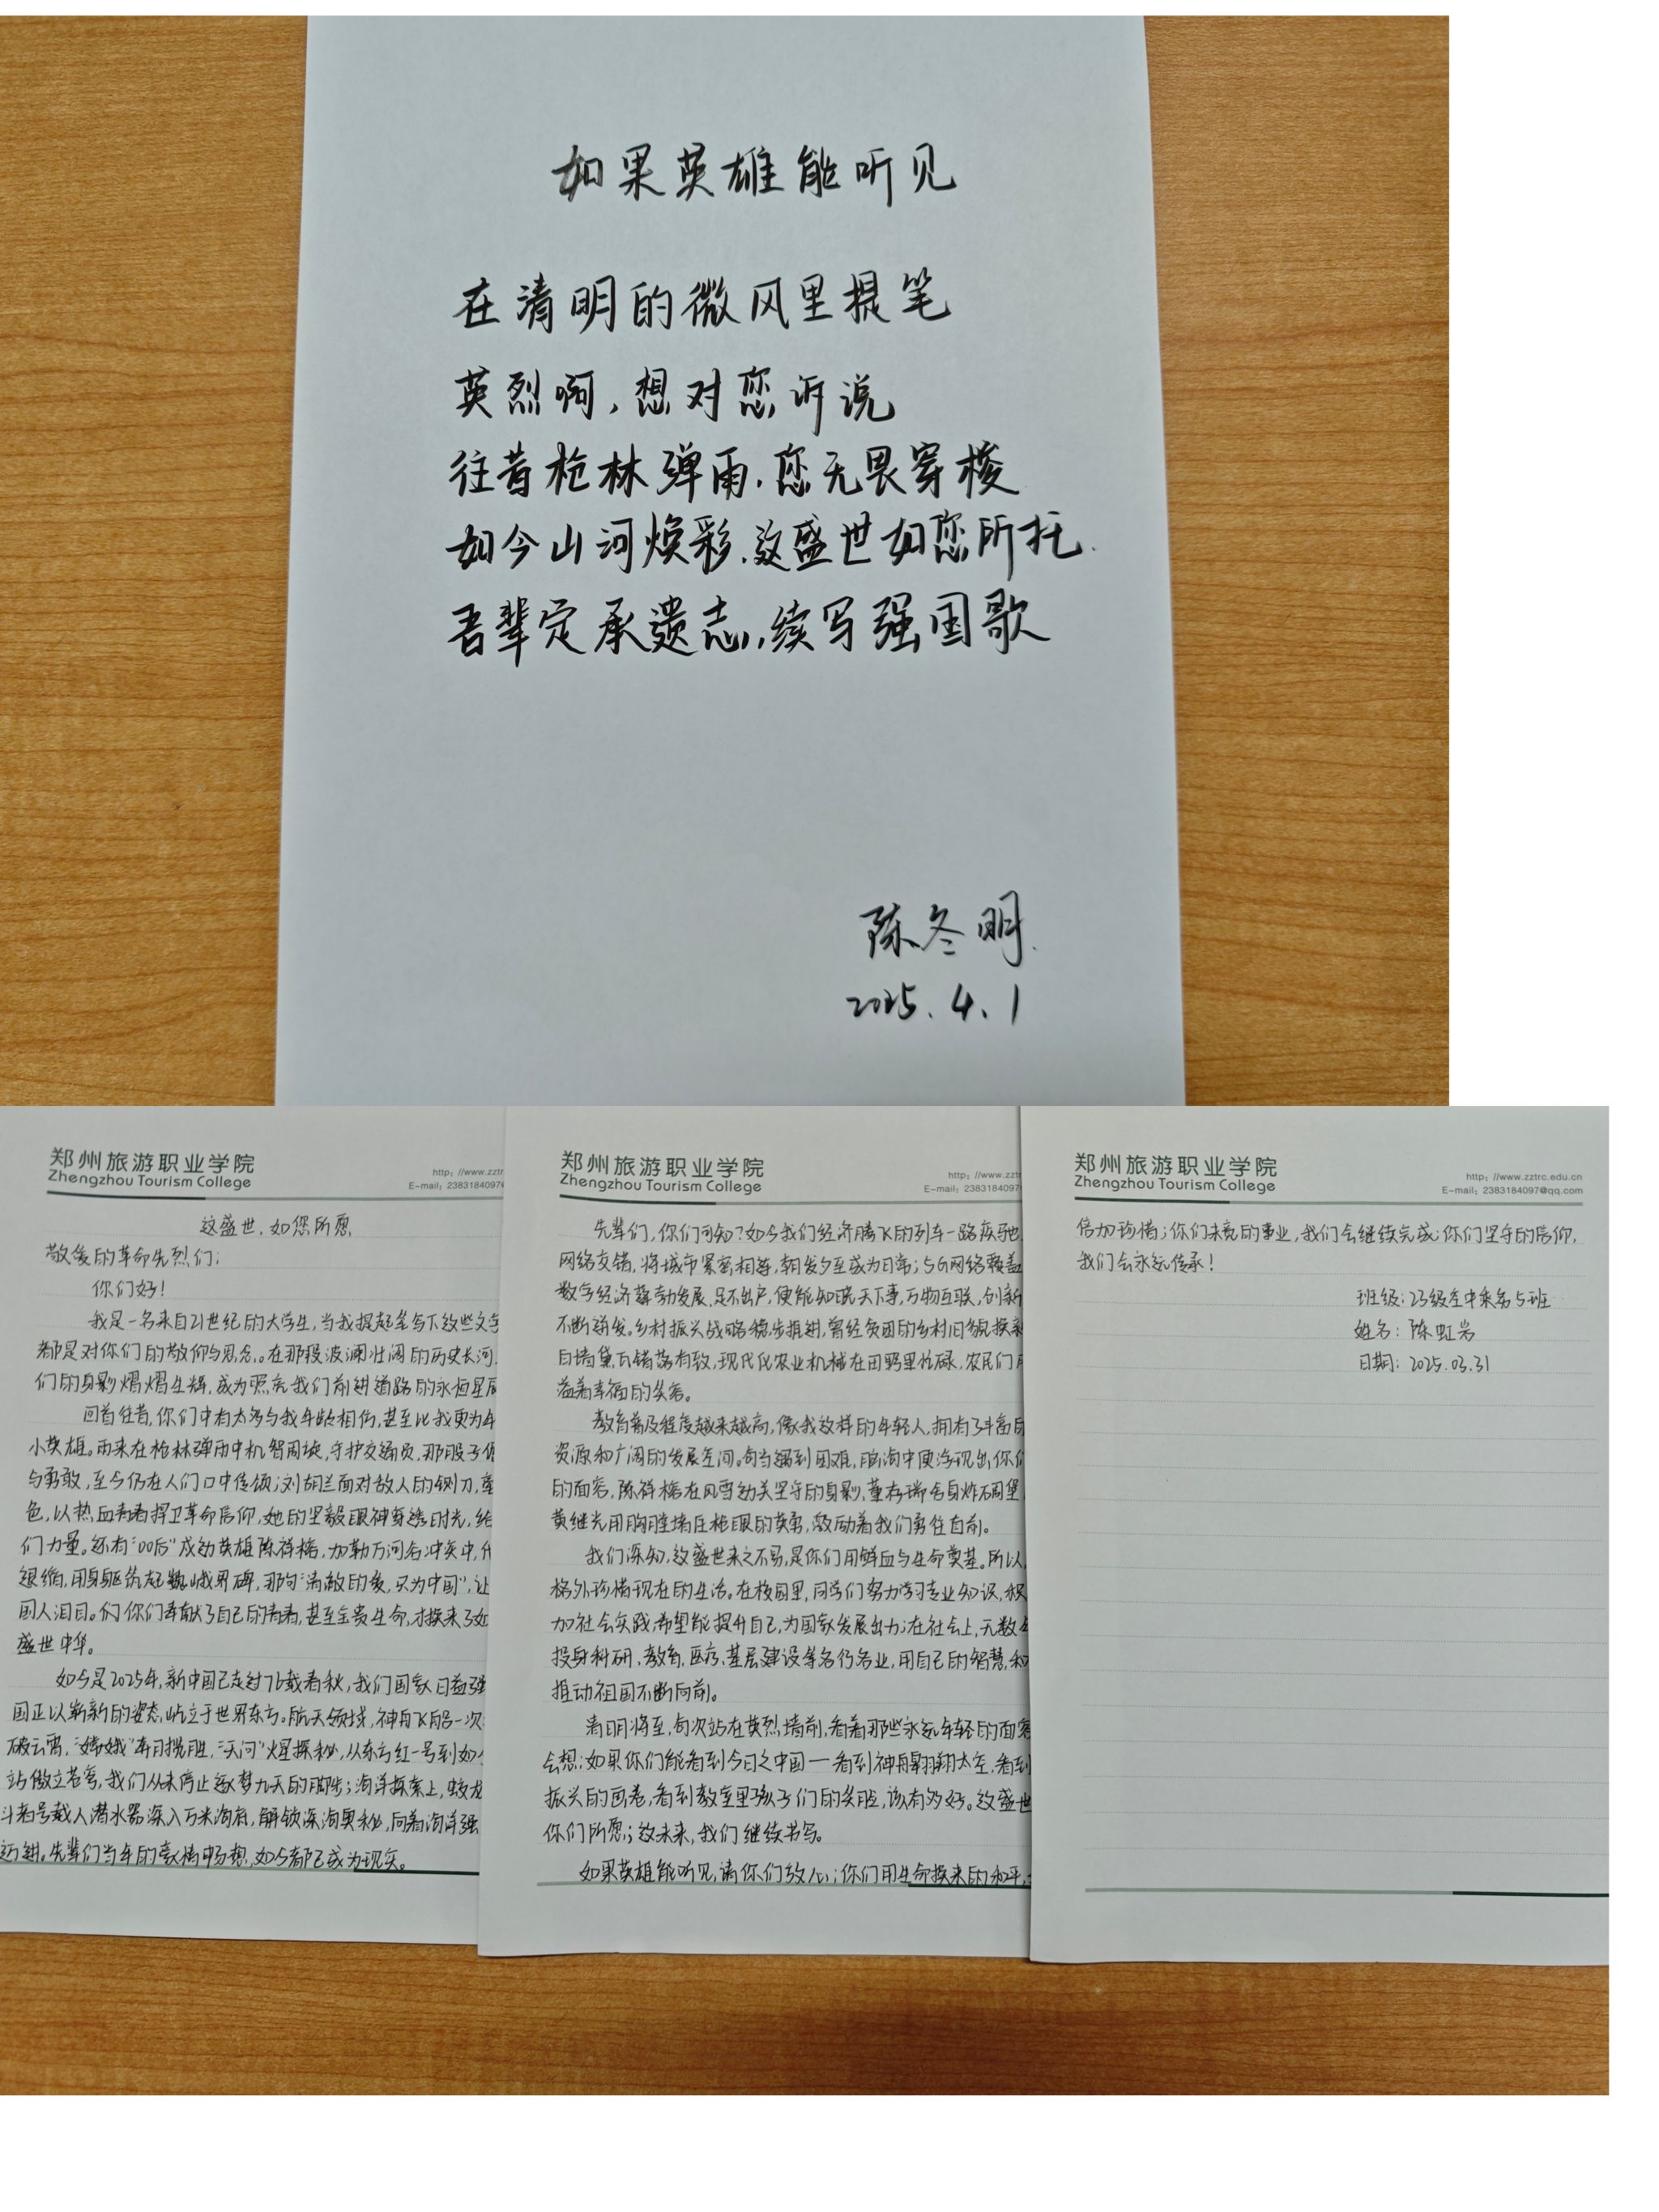 如果英雄能听见
在清明的微风里提笔
英烈啊,想对您诉说
往昔枪林弹雨,您无畏穿梭
如今山河焕彩,这盛世如您所托.
吾辈定承遗志,续写强国歌
陈冬明.
2025.4.1
郑州旅游职业学院
Zhengzhou Tourism College
http://www.zztr
E-mail: 2383184097
这盛世,如您所愿,
敬爱的革命先烈们:
你们好!
我是一名来自21世纪的大学生,当我提起笔写下这些文字
都是对你们的敬仰与思念。在那段波澜壮阔的历史长河
们的身影熠熠生辉,成为照亮我们前进道路的永恒星辰
回首往昔,你们中有太多与我年龄相仿,甚至比我更为年
小英雄。雨来在枪林弹雨中机智周旋,守护交通员,那股子
与勇敢,至今仍在人们口中传颂;刘胡兰面对敌人的铡刀,
色,以热血青春捍卫革命信仰,她的坚毅眼神穿透时光,给
们力量。还有“00后”戍边英雄陈祥榕,加勒万河谷冲突中,
退缩,用身躯筑起巍峨界碑,那句“清澈的爱,只为中国”,让
国人泪目。们你们奉献了自己的青春,甚至宝贵生命,才换来了如
盛世中华。
如今是2025年,新中国已走过76载春秋,我们国家日益强
国正以崭新的姿态,屹立于世界东方。航天领域,神舟飞船一次
破云霄,“嫦娥”奔月揽胜,“天问”火星探秘,从东方红一号到如今
站傲立苍穹,我们从未停止逐梦九天的脚步;海洋探索上,蛟龙
斗者号载人潜水器深入万米海底,解锁深海奥秘,向着海洋强
迈进。先辈们当年的豪情畅想,如今都已成为现实。
郑州旅游职业学院
Zhengzhou Tourism College
http://www.zztr
E-mail: 2383184097
先辈们,你们可知?如今我们经济腾飞的列车一路疾驰
网络交错,将城市紧密相连,朝发夕至成为日常;5G网络覆盖
数字经济蓬勃发展,足不出户,便能知晓天下事,万物互联,创新
不断迸发。乡村振兴战略稳步推进,曾经贫困的乡村旧貌换新
白墙黛瓦错落有致,现代化农业机械在田野里忙碌,农民们
溢着幸福的笑容。
教育普及程度越来越高,像我这样的年轻人,拥有了丰富的
资源和广阔的发展空间。每当遇到困难,脑海中便浮现出你们
的面容,陈祥榕在风雪边关坚守的身影,董存瑞舍身炸碉堡
黄继光用胸膛堵住枪眼的英勇,激励着我们勇往直前。
我们深知,这盛世来之不易,是你们用鲜血与生命奠基。所以
格外珍惜现在的生活。在校园里,同学们努力学习专业知识,积
加社会实践,希望能提升自己,为国家发展出力;在社会上,无数
投身科研、教育、医疗、基层建设等各行各业,用自己的智慧,和
推动祖国不断向前。
清明将至,每次站在英烈墙前,看着那些永远年轻的面容
会想:如果你们能看到今日之中国——看到神舟翱翔太空,看到
振兴的画卷,看到教室里孩子们的笑脸,该有多好。这盛世
你们所愿;这未来,我们继续书写。
如果英雄能听见,请你们放心:你们用生命换来的和平,
郑州旅游职业学院
Zhengzhou Tourism College
http://www.zztrc.edu.cn
E-mail: 2383184097@qq.com
倍加珍惜;你们未竟的事业,我们会继续完成;你们坚守的信仰,
我们会永远传承!
班级:23级空中乘务5班
姓名:陈虹岩
日期:2025.03.31